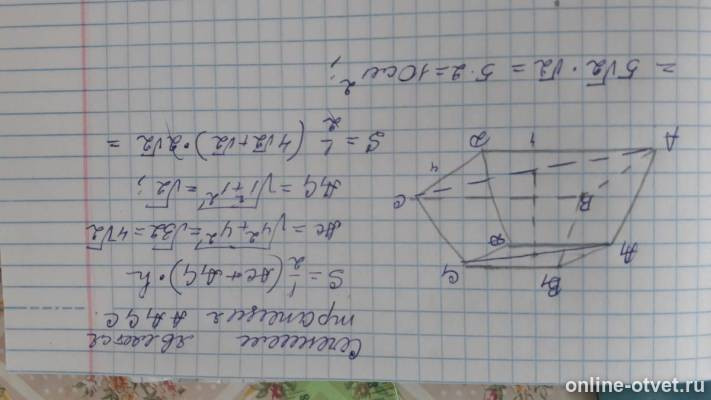 Сечением является
трапеция AA₁C₁C.
S = 1/2 (AC + A₁C₁) · h
AC = √4² + 4² = √32 = 4√2
A₁C₁ = √1 + 1² = √2;
S = 1/2 (4√2 + √2) · 2√2 =
= 5√2 · √2 = 5 · 2 = 10 см²;
A₁
B₁
C₁
D₁
A
B
C
D
4
1
online-otvet.ru